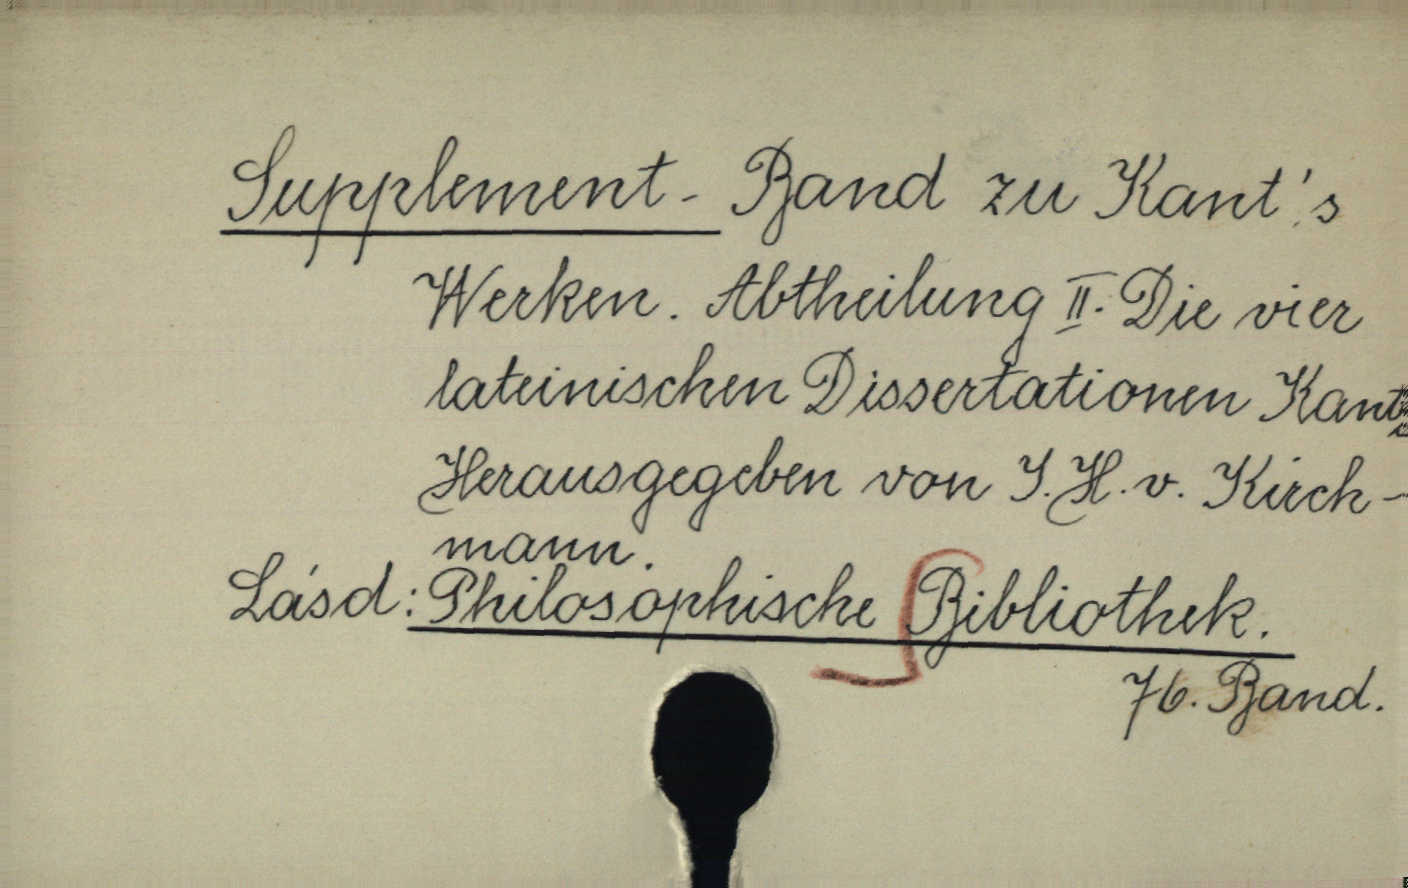 Supplement - Band zu Kant's
Werken. Abtheilung II. Die vier
lateinischen Dissertationen Kants
Herausgegeben von J. H. v. Kirch-
mann.
Lásd: Philosophische Bibliothek.
76. Band.